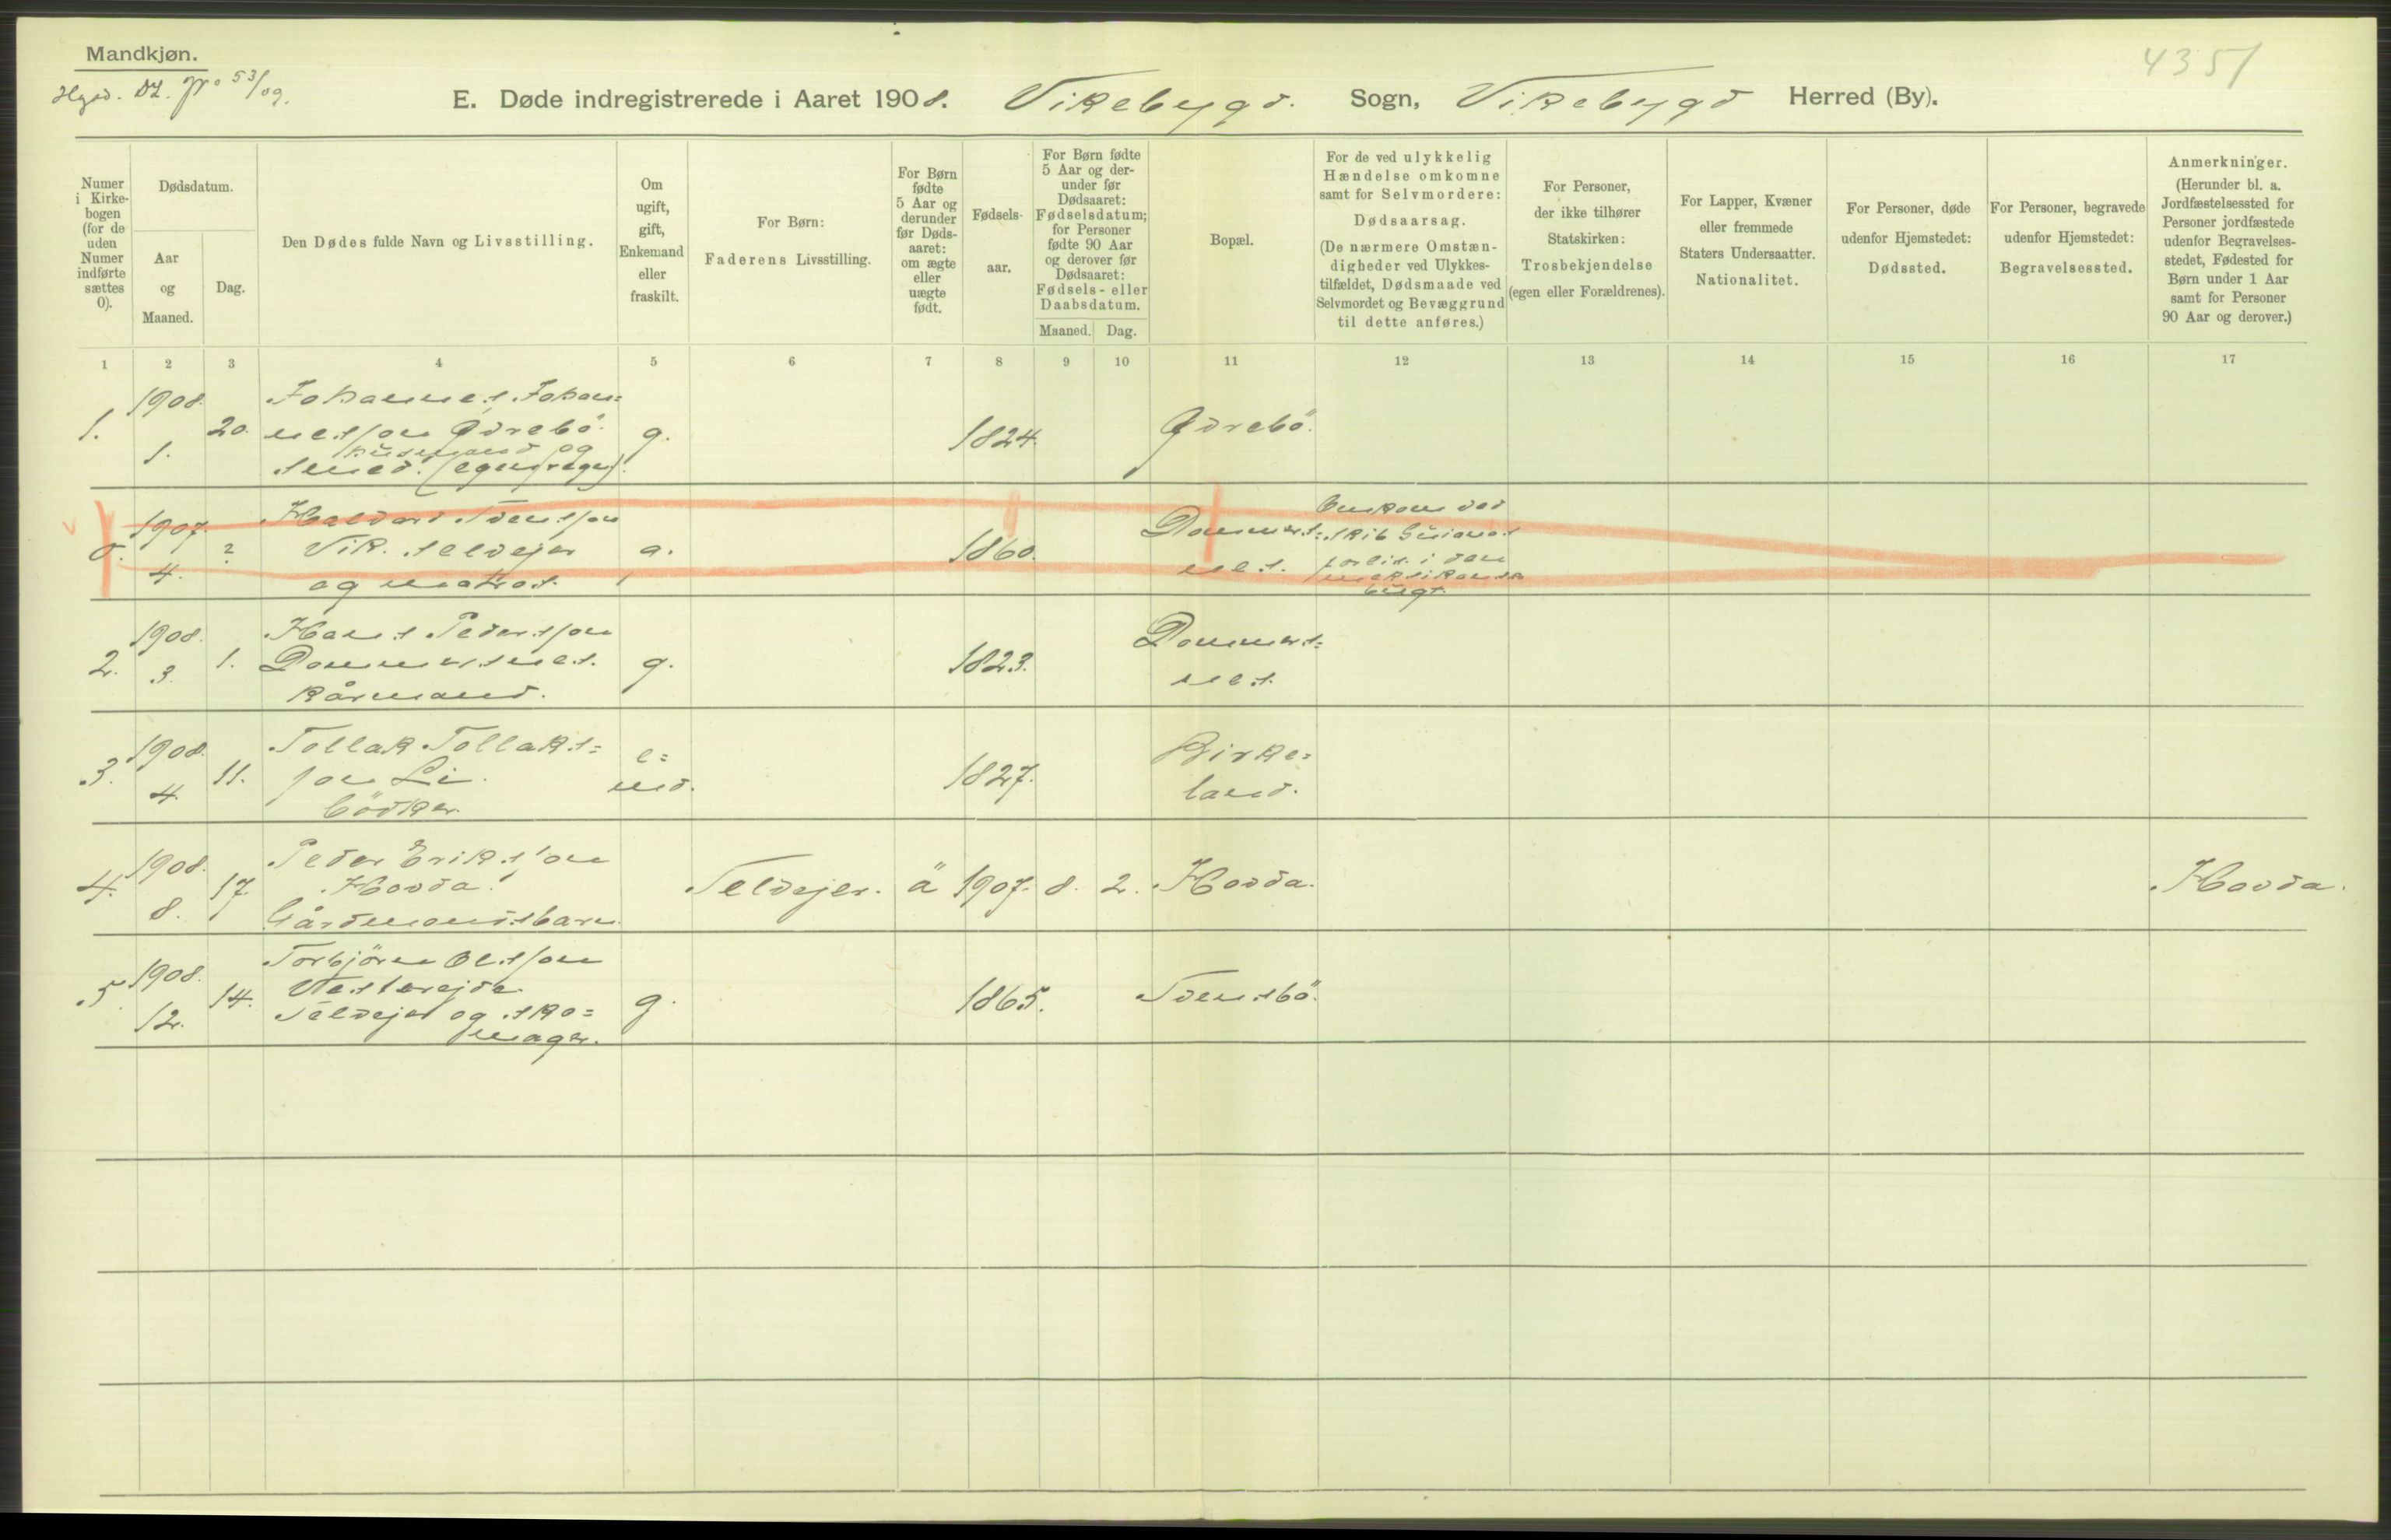 Mandkjøn.
4351
53/09.
E. Døde indregistrerede i Aaret 1908. Vikebygd. Sogn, Vikebygd Herred (By).
Numer
i Kirke-
bogen
(for de
uden
Numer
indførte
sættes
0).
Dødsdatum.
Aar
og
Maaned.
Dag.
Den Dødes fulde Navn og Livsstilling.
Om
ugift,
gift,
Enkemand
eller
fraskilt.
For Børn:
Faderens Livsstilling.
For Børn
fødte
5 Aar og
derunder
før Døds-
aaret:
om ægte
eller
uægte
født.
Fødsels-
aar.
For Børn fødte
5 Aar og der-
under før
Dødsaaret:
Fødselsdatum;
for Personer
fødte 90 Aar
og derover før
Dødsaaret:
Fødsels- eller
Daabsdatum.
Maaned. Dag.
Bopæl.
For de ved ulykkelig
Hændelse omkomne
samt for Selvmordere:
Dødsaarsag.
(De nærmere Omstæn-
digheder ved Ulykkes-
tilfældet, Dødsmaade ved
Selvmordet og Bevæggrund
til dette anføres.)
For Personer,
der ikke tilhører
Statskirken:
Trosbekjendelse
(egen eller Forældrenes).
For Lapper, Kvæner
eller fremmede
Staters Undersaatter.
Nationalitet.
For Personer, døde
udenfor Hjemstedet:
Dødssted.
For Personer, begravede
udenfor Hjemstedet:
Begravelsessted.
Anmerkninger.
(Herunder bl. a.
Jordfæstelsessted for
Personer jordfæstede
udenfor Begravelses-
stedet, Fødested for
Børn under 1 Aar
samt for Personer
90 Aar og derover.)
1 2 3 4 5 6 7 8 9 10 11 12 13 14 15 16 17
1. 1908. 1. 20. g. 1824.
Johannes Johan=
nesson Ørebö
husmand og
smed.
0. 1907. 4. ? 1860.
Haldor
Vik. selvejer
og matros.
Dommers=
nes.
omkom ved
forlis i den
meksikanske
bugt.
2. 1908. 3. 1. g. 1823.
Hans Pederson
Dommersnes.
kårmand.
Dommers=
nes.
3. 1908. 4. 11. e=
md. 1827.
Tollak Tollaks=
son Li.
bödker.
Birke=
land.
4. 1908. 8. 17. Selvejer. ä 1907. 8. 2. Hovda. Hovda.
Peder Erikson
Hovda.
Gårdmandsbarn.
5. 1908. 12. 14. g. 1865. Svensbö.
Torbjörn Olsson
Selvejer og sko=
mager.